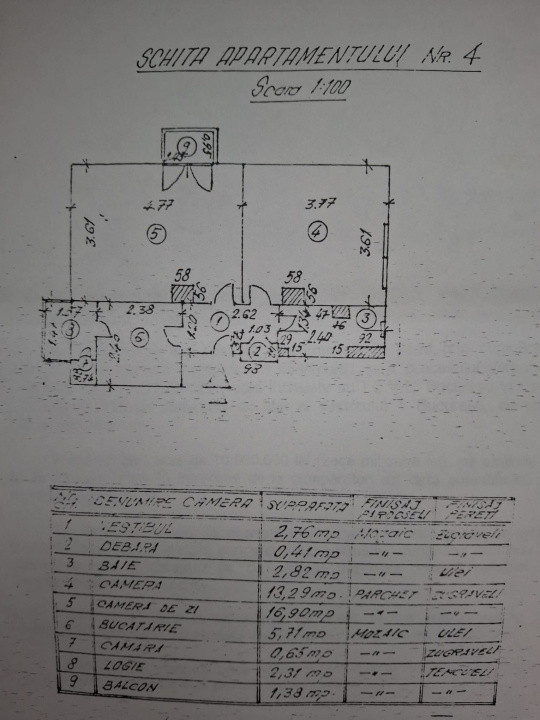 SCHITA APARTAMENTULUI NR. 4
Scara 1:100
9
4.77
3.77
5
4
3.61
3.61
58
56
58
56
2.38
1.20
1
2.62
1.34
47
46
3
1.41
6
2.40
1.03
29
2.40
92
2
15
15
93
NR. DENUMIRE CAMERA SUPRAFATA FINISAJ PARDOSELI FINISAJ PERETI
1 VESTIBUL 2,76 mp MOZAIC Zugraveli
2 DEBARA 0,41 mp —"— —"—
3 BAIE 2,82 mp —"— Ulei
4 CAMERA 13,29 mp PARCHET ZUGRAVELI
5 CAMERA DE ZI 16,90 mp —"— —"—
6 BUCATARIE 5,71 mp MOZAIC ULEI
7 CAMARA 0,65 mp —"— ZUGRAVELI
8 LOGIE 2,31 mp —"— TENCUELI
9 BALCON 1,38 mp —"— —"—